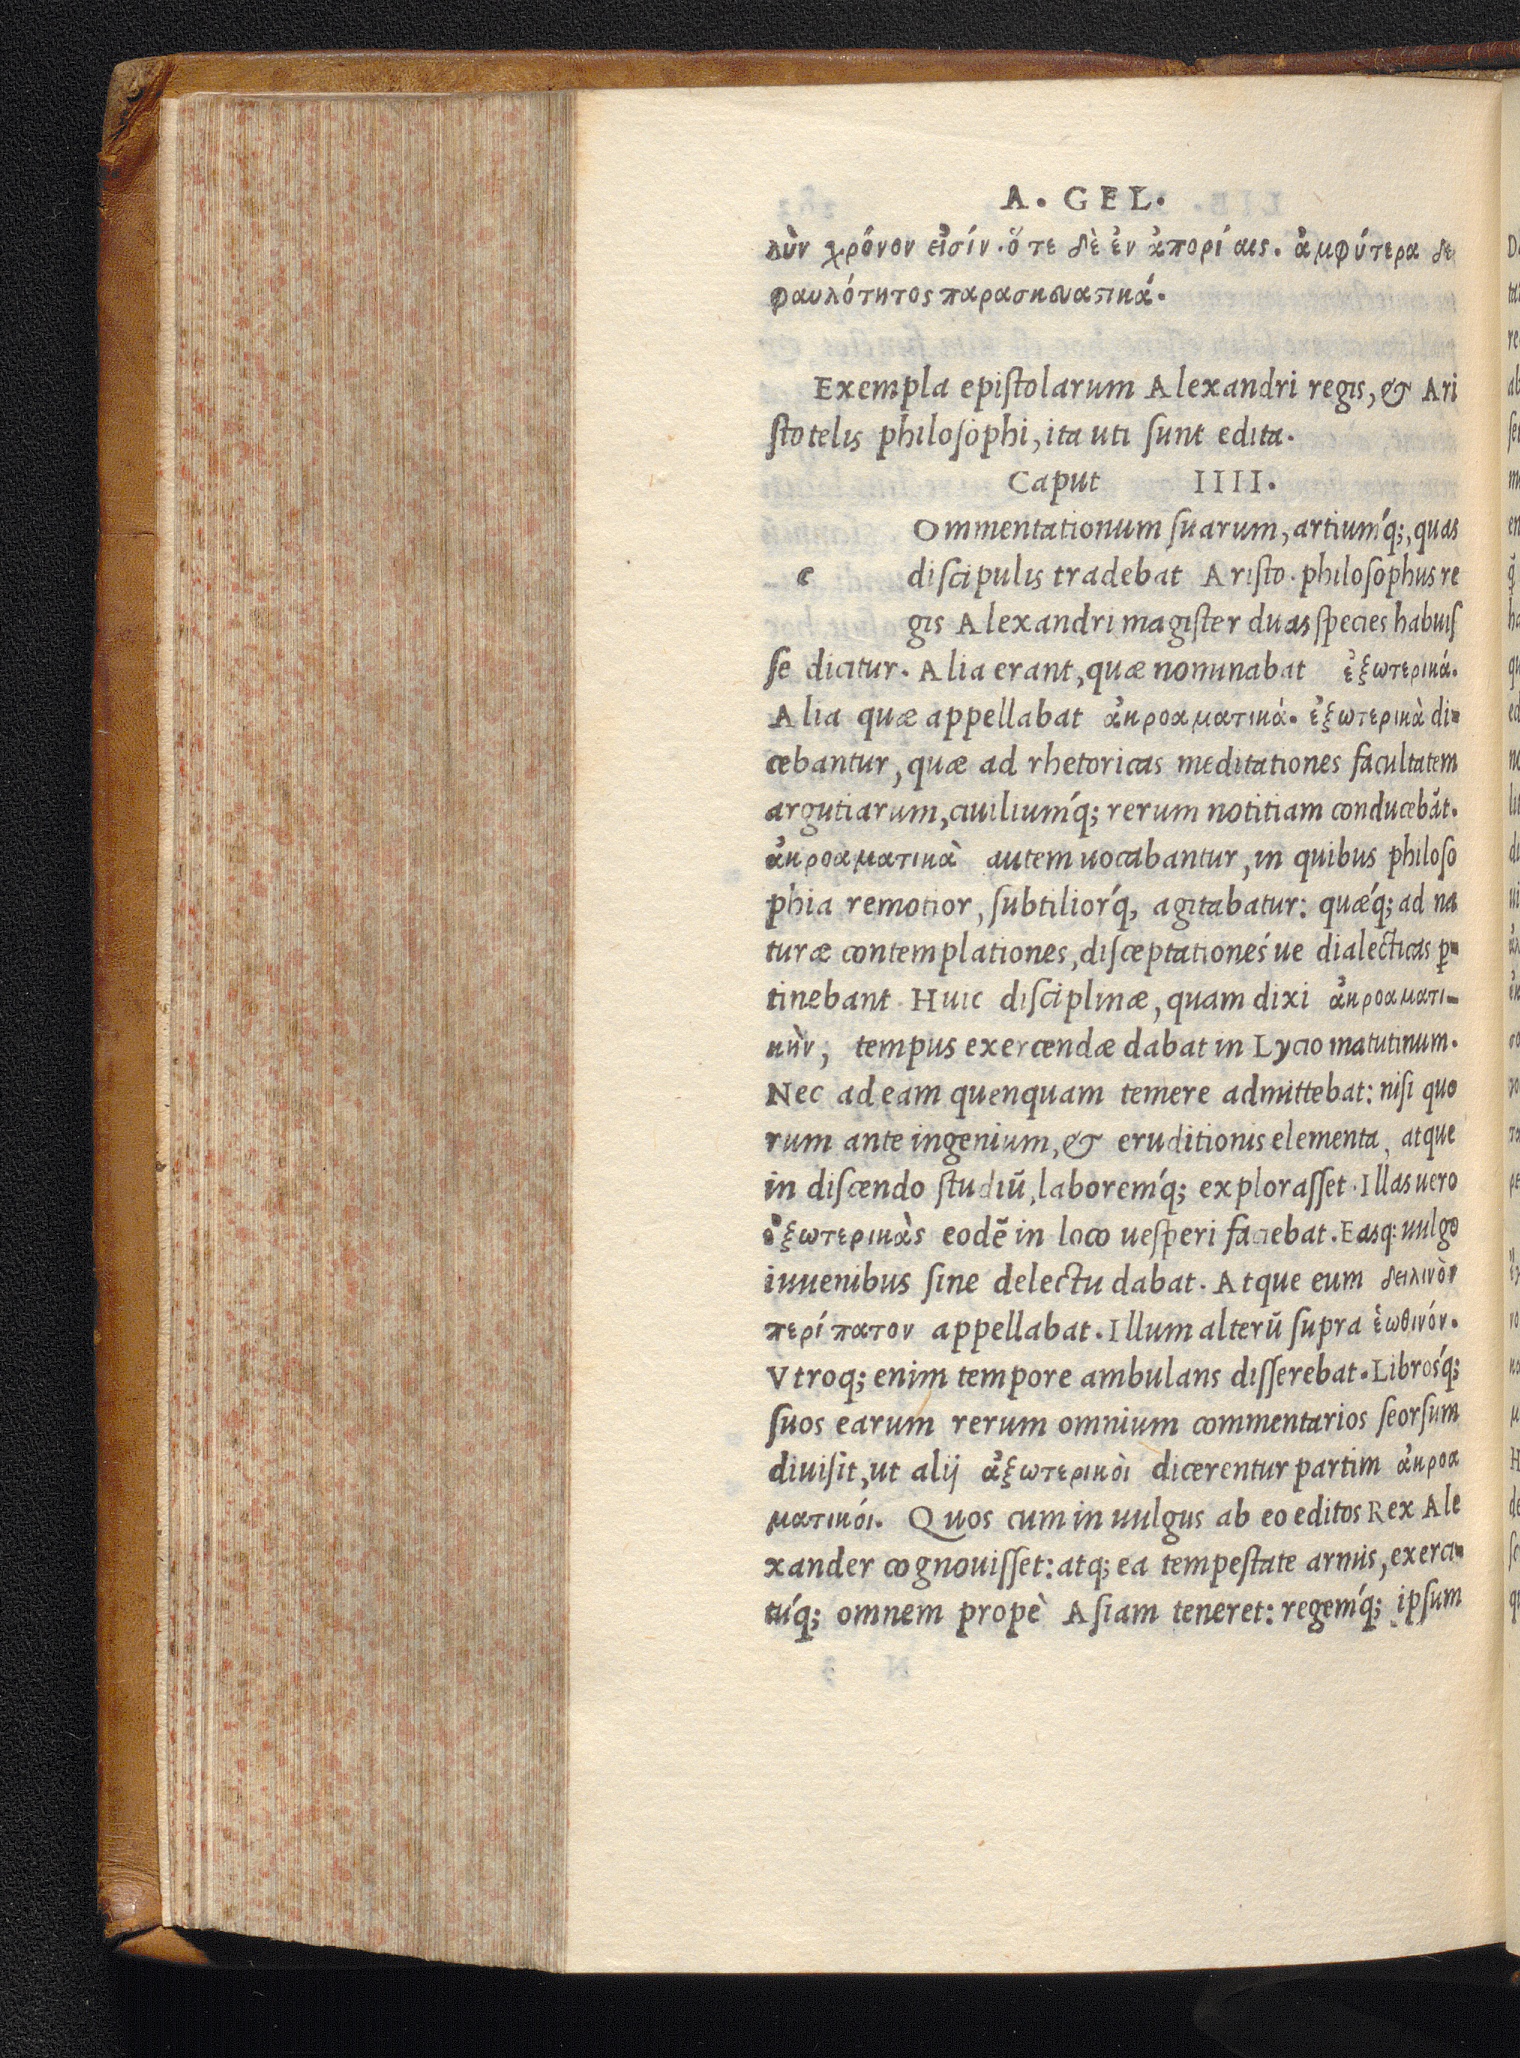 A. GEL.
λὺν χρόνον εἰσίν. ὅτε δὲ ἐν ἀπορίαις. ἀμφύτερα δε
φαυλότητος παρασκευαστικά.
Exempla epistolarum Alexandri regis, & Ari
stotelis philosophi, ita uti sunt edita.
Caput IIII.
Ommentationum suarum, artiumq́;, quas
c discipulis tradebat Aristo. philosophus re
gis Alexandri magister duas species habuis
se dicitur. Alia erant, quæ nominabat ἐξωτερικά.
Alia quæ appellabat ἀκροαματικά. ἐξωτερικὰ di-
cebantur, quæ ad rhetoricas meditationes facultatem
argutiarum, ciuiliumq́; rerum notitiam conducebāt.
ἀκροαματικὰ autem uocabantur, in quibus philoso
phia remotior, subtiliorq́, agitabatur: quæq́; ad na
turæ contemplationes, disceptationeśue dialecticas ꝑ-
tinebant. Huic disciplinæ, quam dixi ἀκροαματι-
κὴν, tempus exercendæ dabat in Lycio matutinum.
Nec ad eam quenquam temere admittebat: nisi quo
rum ante ingenium, & eruditionis elementa, atque
in discendo studiū, laboremq́; explorasset. Illas uero
ὀξωτερικὰς eodē in loco uesperi faciebat. Easq: uulgo
iuuenibus sine delectu dabat. Atque eum δειλινὸν
περίπατον appellabat. Illum alterū supra ἑωθινόν.
Vtroq; enim tempore ambulans disserebat. Librosq́;
suos earum rerum omnium commentarios seorsum
diuisit, ut alij ἀξωτερικοὶ dicerentur partim ἀκροα
ματικόι. Quos cum in uulgus ab eo editos Rex Ale
xander cognouisset: atq; ea tempestate armis, exerci-
túq; omnem propè Asiam teneret: regemq́; ipsum